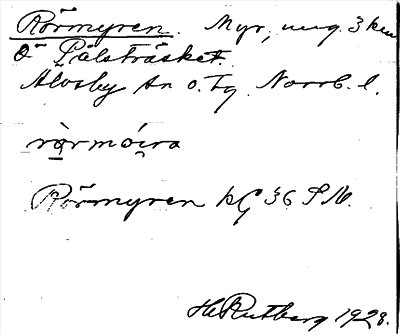 Rörmyren. Myr, ung. 3 km
Ö Pälsträsket.
Älvsby sn o. tg Norrb. l.
rø̀rmóira
Rörmyren kG 36 S V.
H Rutberg 1928.